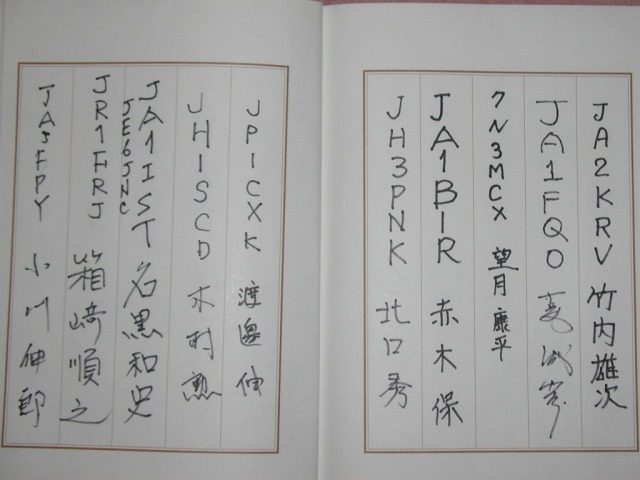 JA2KRV 竹内雄次
JA1FQO
7N3MCX 望月康平
JA1BIR 赤木保
JH3PNK 北口秀
JP1CXK 渡邉伸
JH1SCD 木村勲
JA1IST 名黒和史
JE6JNC
JR1FRJ 箱﨑順之
JA5FPY 小川伸郎